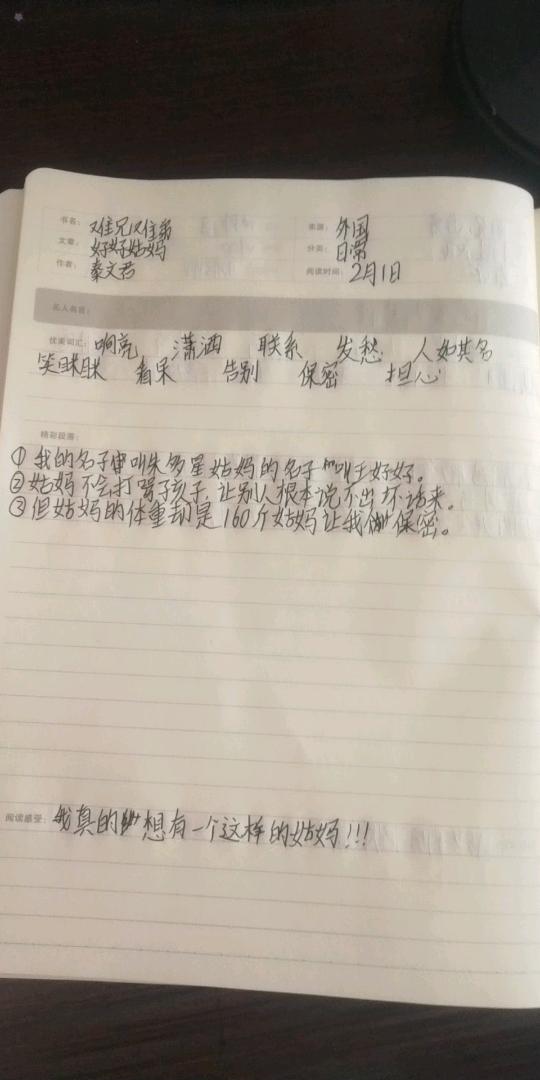 书名：难兄难弟 来源：外国
文章：好好姑妈 分类：日常
作者：秦文君 阅读时间：2月1日
名人名言：
优美词汇：响亮 潇洒 联系 发愁 人如其名
笑眯眯 着呆 告别 保密 担心
精彩段落：
①我的名子叫朱多星姑妈的名子叫王好好。
②姑妈不会打骂子孩子，让别人根本说不出坏话来。
③但姑妈的体重却是160斤姑妈让我保密。
阅读感受：我真的想有一个这样的姑妈!!!